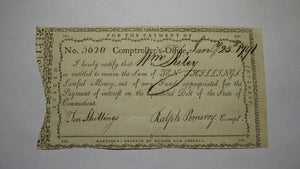 FOR THE PAYMENT OF
No. 5020 Comptroller's-Office,
I hereby certify that
is entitled to receive the Sum of TEN SHILLINGS
Lawful Money, out of any Fund appropriated for the
Payment of interest on the Debt of the State of
Connecticut.
Ten Shillings Ralph Pomeroy Compt.
HARTFORD: PRINTED BY HUDSON AND GOODWIN.